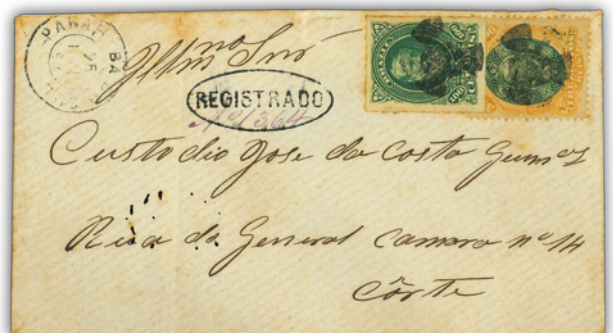 PARAH BA
Illmº Snr
REGISTRADO
Nº 1364
Custodio Jose da Costa Guim.es
Rua do General Camara nº 14
Côrte
BRAZIL
100